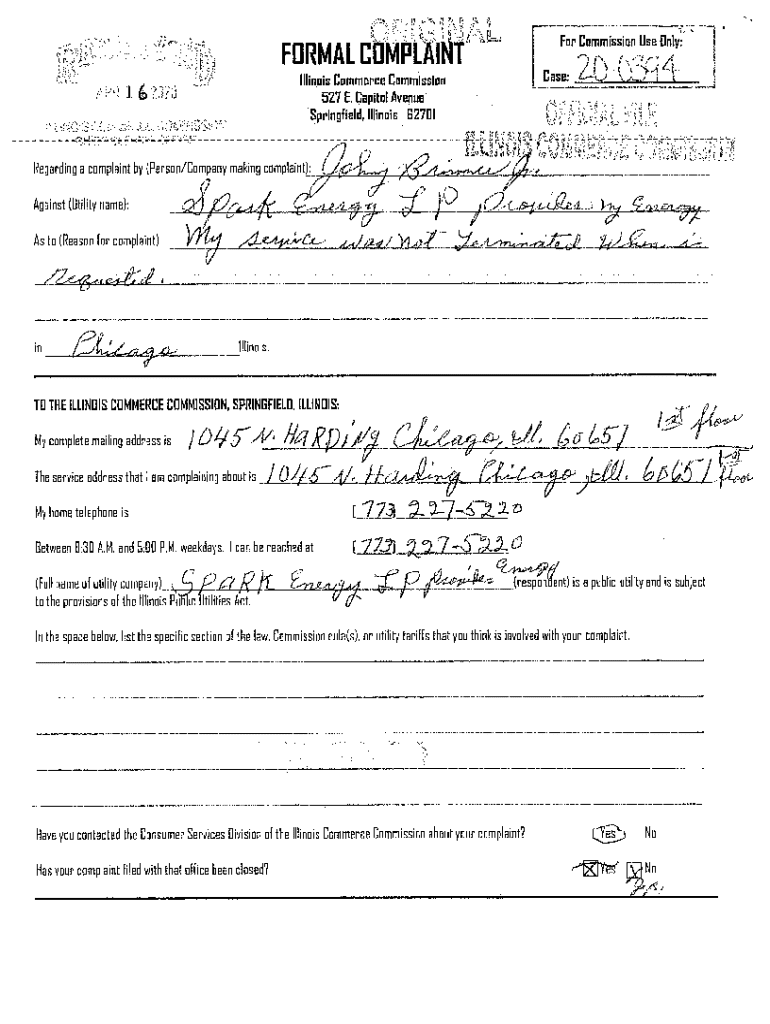 ORIGINAL
FORMAL COMPLAINT
For Commission Use Only:
Illinois Commerce Commission
Case: 20-0394
527 E. Capitol Avenue
APR 16 2020
Springfield, Illinois 62701
OFFICIAL FILE
ILLINOIS COMMERCE COMMISSION
Regarding a complaint by (Person/Company making complaint): Johny Jr.
Against (Utility name): Spark Energy L P Provider Energy
As to (Reason for complaint) My service was not Terminated When is
Requested.
in Chicago Illinois.
TO THE ILLINOIS COMMERCE COMMISSION, SPRINGFIELD, ILLINOIS:
My complete mailing address is 1045 N. HARDING Chicago, Ill. 60651 1st floor
The service address that I am complaining about is 1045 N. Harding Chicago, Ill. 60651 1st floor
My home telephone is [773] 227-5220
Between 8:30 A.M. and 5:00 P.M. weekdays, I can be reached at [773] 227-5220
(Full name of utility company) SPARK Energy L P Provider Energy (respondent) is a public utility and is subject
to the provisions of the Illinois Public Utilities Act.
In the space below, list the specific section of the law, Commission rule(s), or utility tariffs that you think is involved with your complaint.
Have you contacted the Consumer Services Division of the Illinois Commerce Commission about your complaint? Yes No
Has your complaint filed with that office been closed? Yes No